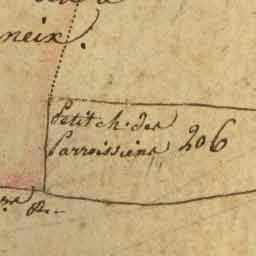 neix.
Petit ch. des
Parroissiens 206